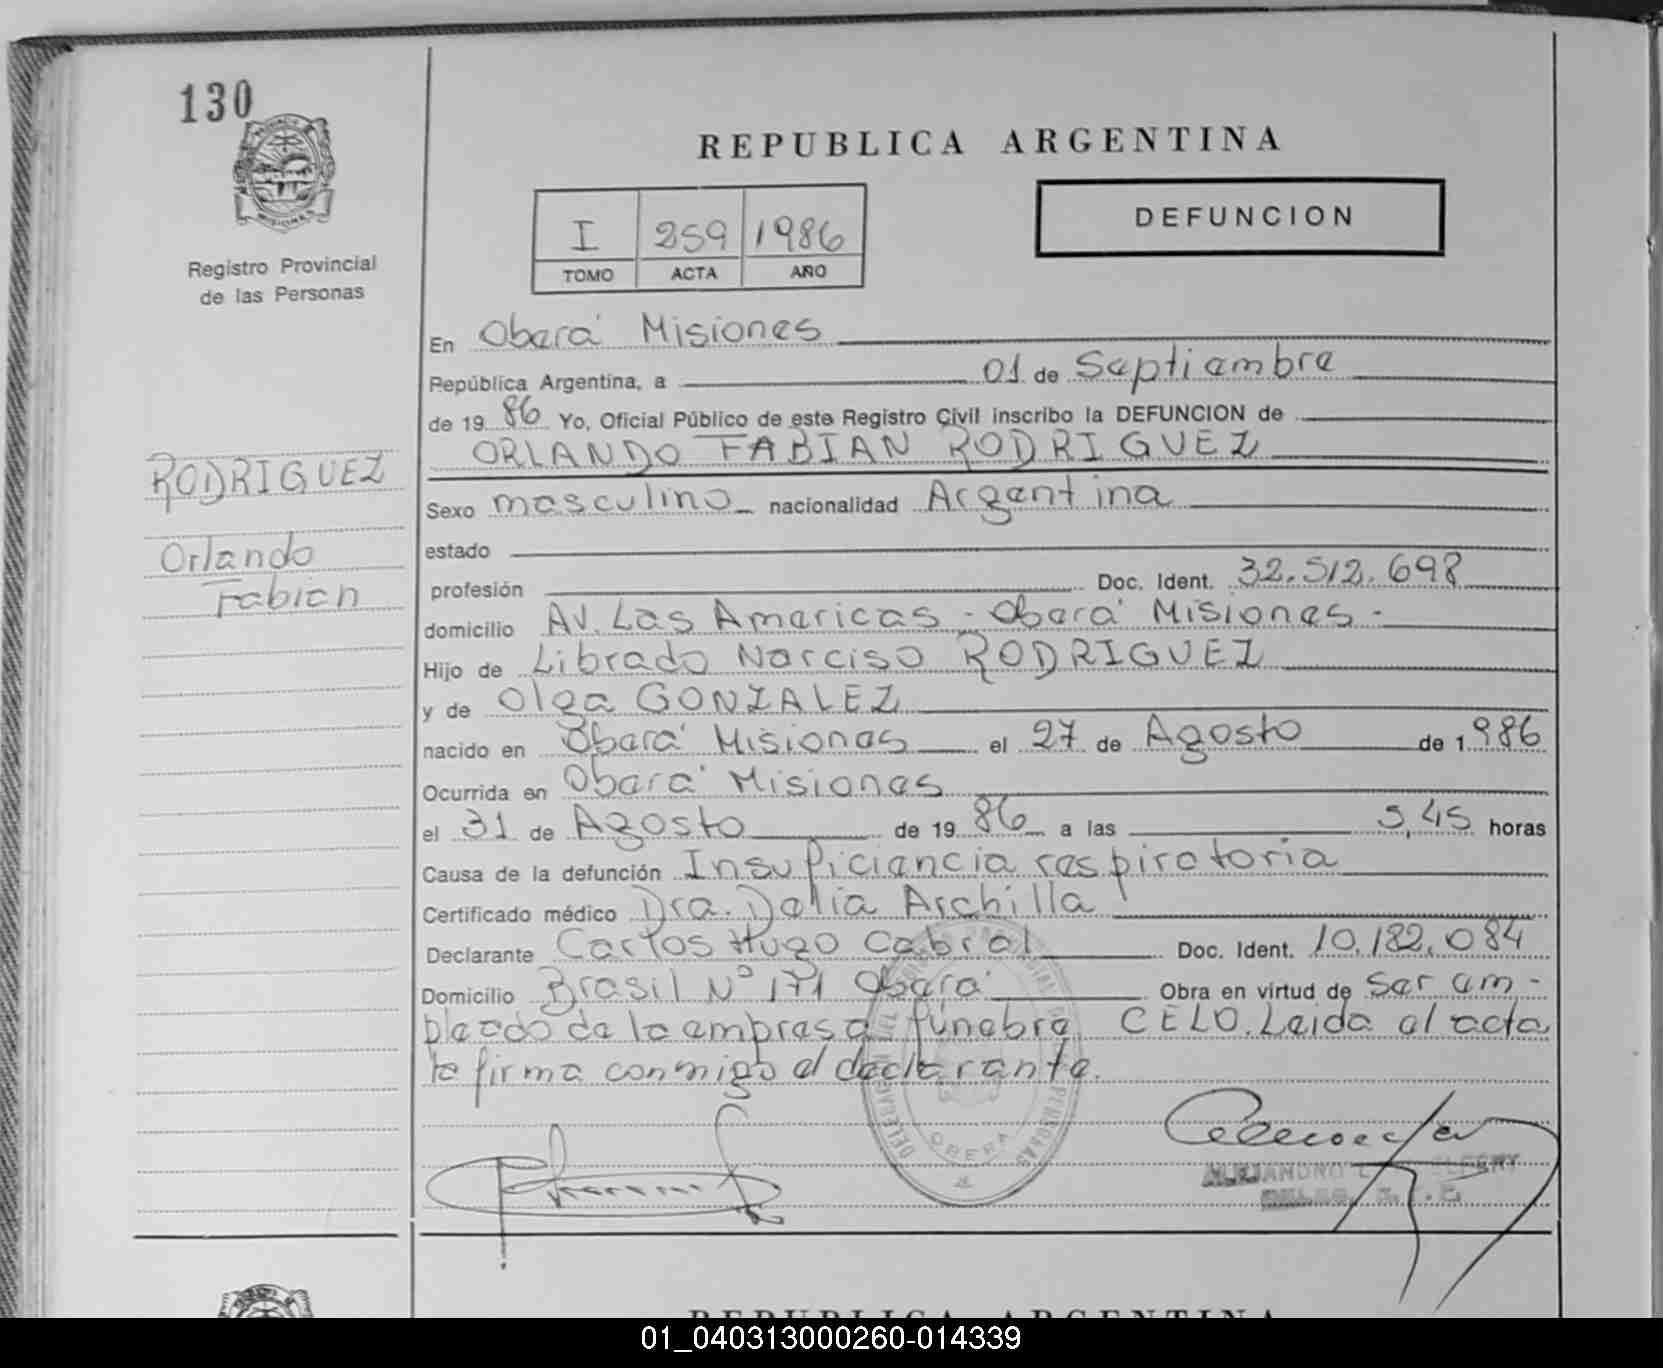 130
PROVINCIA DE
MISIONES
Registro Provincial
de las Personas
REPUBLICA ARGENTINA
I 259 1986
TOMO ACTA AÑO
DEFUNCION
En Oberá Misiones
República Argentina, a 01 de Septiembre
de 19 86 Yo, Oficial Público de este Registro Civil inscribo la DEFUNCION de
ORLANDO FABIAN RODRIGUEZ
RODRIGUEZ
Orlando
Fabian
Sexo masculino nacionalidad Argentina
estado
profesión Doc. Ident. 32.512.698
domicilio Av. Las Americas - Oberá Misiones -
Hijo de Librado Narciso RODRIGUEZ
y de Olga GONZALEZ
nacido en Oberá Misiones el 27 de Agosto de 1986
Ocurrida en Oberá Misiones
el 31 de Agosto de 19 86 a las 5,45 horas
Causa de la defunción Insuficiencia respiratoria
Certificado médico Dra. Delia Archilla
Declarante Carlos Hugo Cabral Doc. Ident. 10.182.084
Domicilio Brasil Nº 171 Oberá Obra en virtud de ser em-
pleado de la empresa fúnebre CELO. Leida el acta
la firma conmigo el declarante.
OBERA
ALEJANDRO
REPUBLICA ARGENTINA
01_040313000260-014339